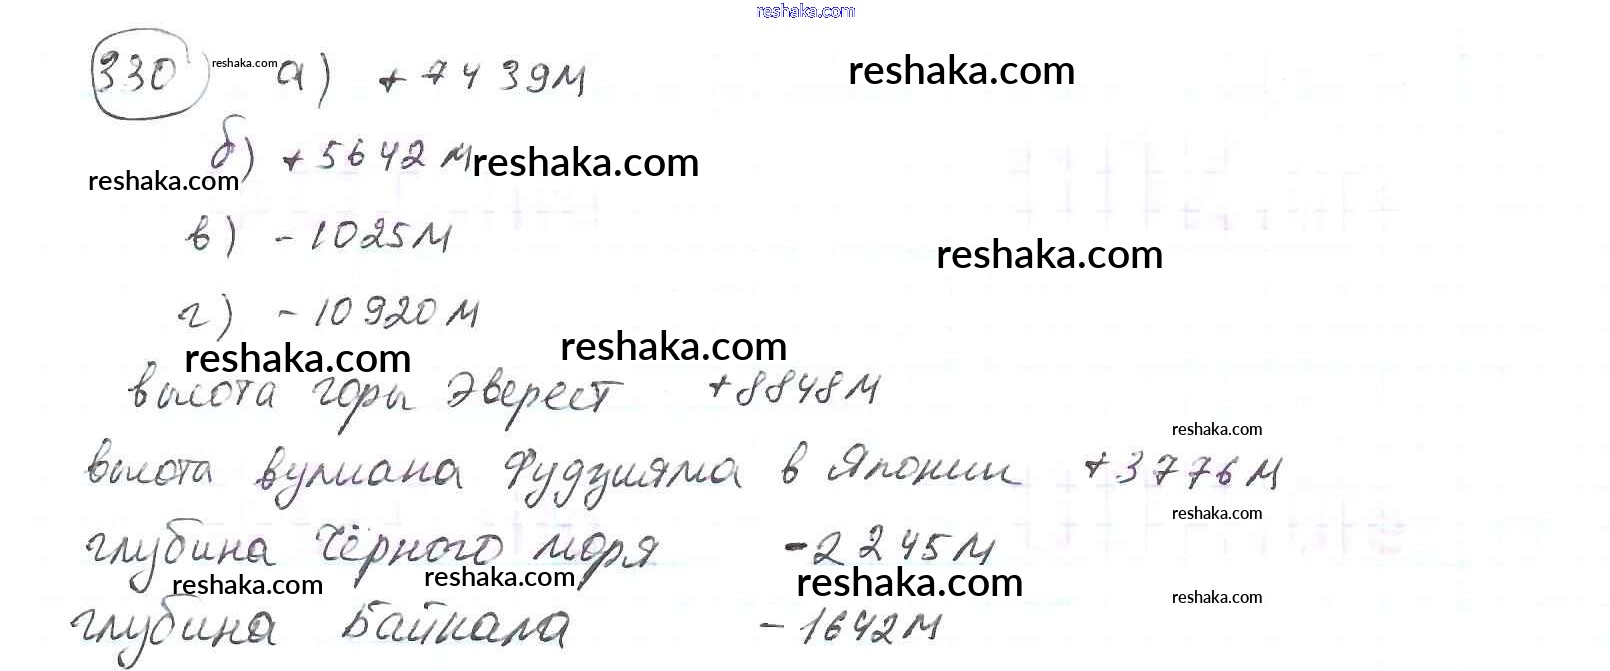 reshaka.com
330 reshaka.com а) +7439м reshaka.com
б) +5642м reshaka.com
reshaka.com
в) -1025м
reshaka.com
г) -10920м
reshaka.com reshaka.com
высота горы Эверест +8848м
reshaka.com
высота вулкана Фудзияма в Японии +3776м
reshaka.com
глубина Чёрного моря -2245м
reshaka.com reshaka.com reshaka.com reshaka.com
глубина Байкала -1642м